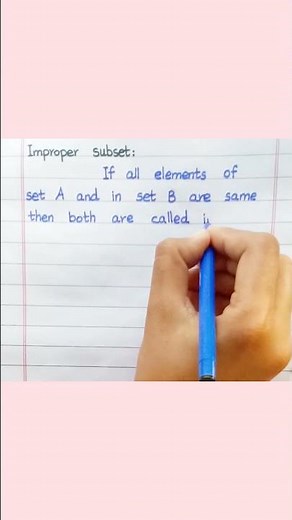 Improper subset:
If all elements of
set A and in set B are same
then both are called i